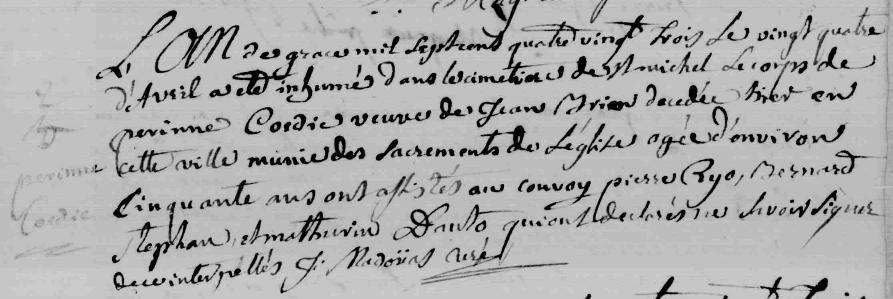 L'An de grace mil sept cent quatre vingt trois le vingt quatre
d'Avril a eté inhumé dans le cimetiere de St michel le corps de
perinne Coedic veuve de Jean Brien decedée hier en
cette ville munie des sacrements de L'église agée d'environ
Cinquante ans ont assistés au convoy pierre Ryo, Bernard
Stephan, et mathurin Danto qui ont declarés ne savoir signer
de ce interpellés
perinne
Coedic